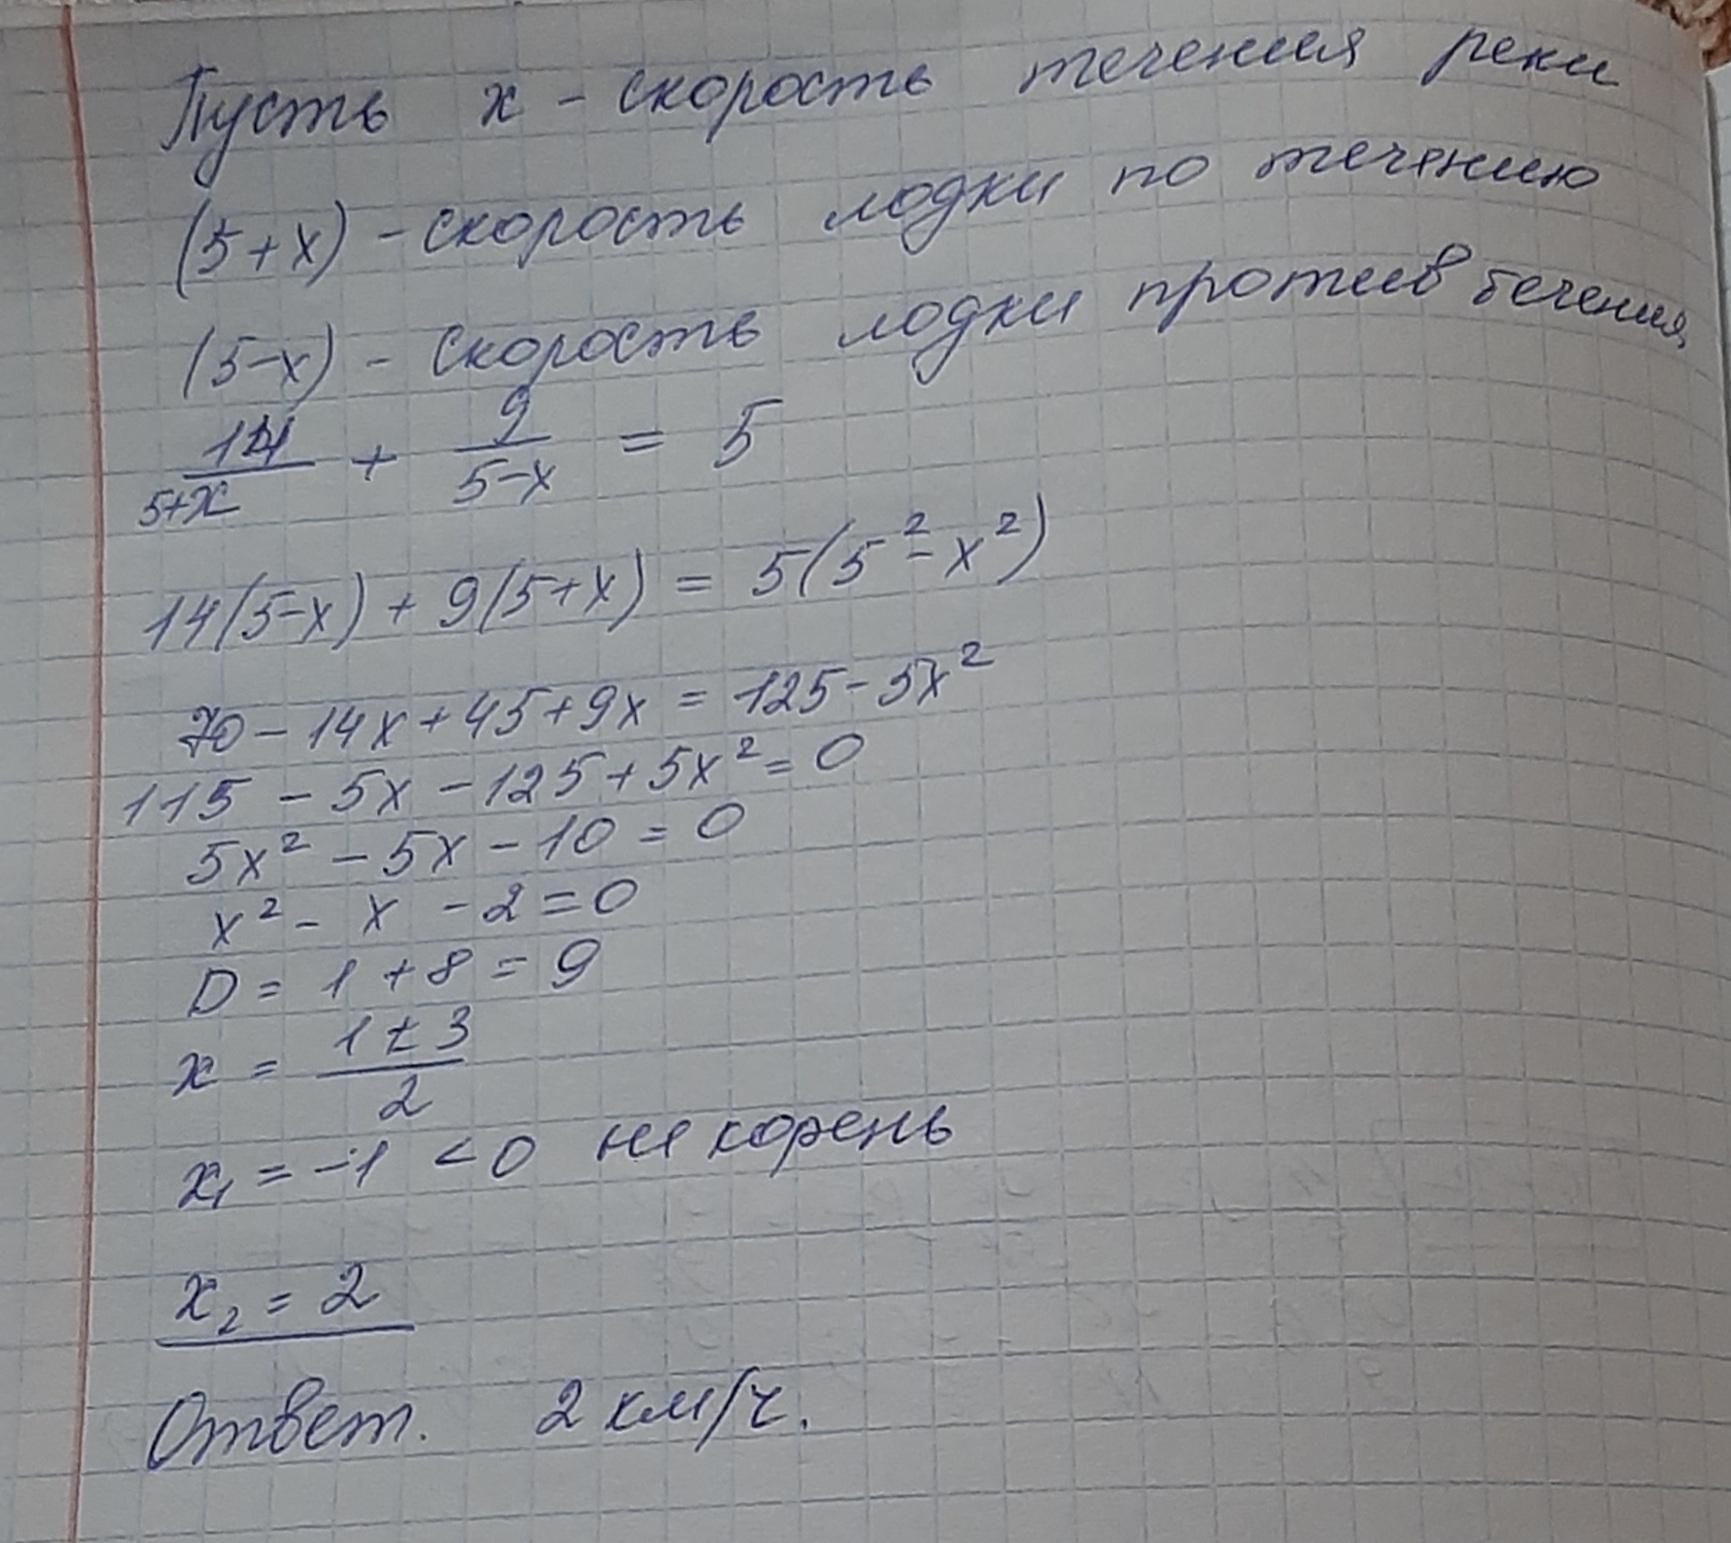 Пусть x - скорость течения реки
(5+x) - скорость лодки по течению
(5-x) - скорость лодки против течения
14/(5+x) + 9/(5-x) = 5
14(5-x) + 9(5+x) = 5(5² - x²)
70 - 14x + 45 + 9x = 125 - 5x²
115 - 5x - 125 + 5x² = 0
5x² - 5x - 10 = 0
x² - x - 2 = 0
D = 1 + 8 = 9
x = (1 ± 3)/2
x₁ = -1 < 0 не корень
x₂ = 2
Ответ. 2 км/ч.